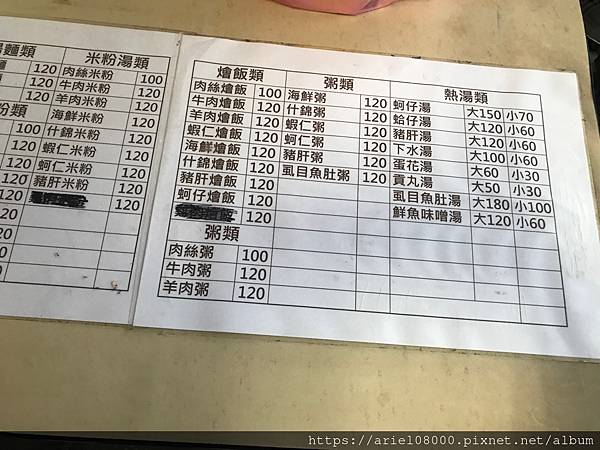 麵類
120
120
120
粉類
100
120
120
120
120
米粉湯類
肉絲米粉 100
牛肉米粉 120
羊肉米粉 120
海鮮米粉 120
什錦米粉 120
蝦仁米粉 120
蚵仁米粉 120
豬肝米粉 120
120
燴飯類
肉絲燴飯 100
牛肉燴飯 120
羊肉燴飯 120
蝦仁燴飯 120
海鮮燴飯 120
什錦燴飯 120
豬肝燴飯 120
蚵仔燴飯 120
120
粥類
肉絲粥 100
牛肉粥 120
羊肉粥 120
粥類
海鮮粥 120
什錦粥 120
蝦仁粥 120
蚵仁粥 120
豬肝粥 120
虱目魚肚粥 120
熱湯類
蚵仔湯 大150 小70
蛤仔湯 大120 小60
豬肝湯 大120 小60
下水湯 大100 小60
蛋花湯 大60 小30
貢丸湯 大50 小30
虱目魚肚湯 大180 小100
鮮魚味噌湯 大120 小60
https://ariel08000.pixnet.net/album